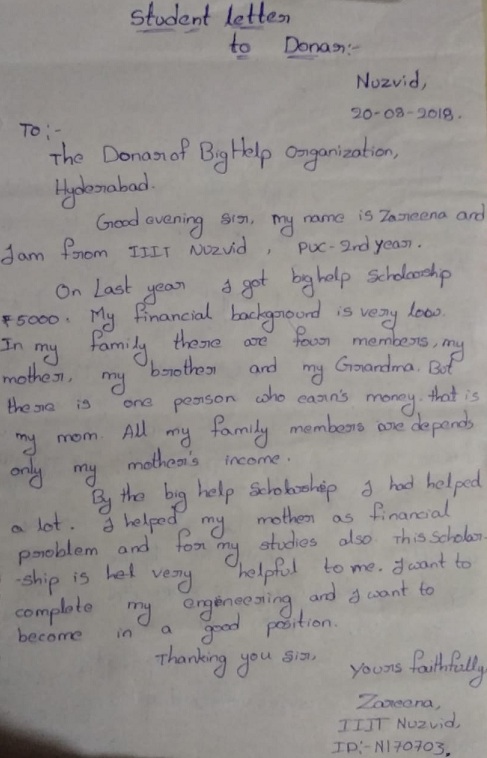 Student letter
to Donar:-
Nuzvid,
20-08-2018.
To:-
The Donar of Big Help Organization,
Hyderabad.
Good evening sir, my name is Zareena and
I am from IIIT Nuzvid, PUC-2nd year.
On Last year I got big help Scholarship
₹5000. My financial background is very low.
In my family there are four members, my
mother, my brother and my Grandma. But
there is one person who earn's money. that is
my mom. All my family members are depends
only my mother's income.
By the big help Scholarship I had helped
a lot. I helped my mother as financial
problem and for my studies also. This scholar-
-ship is very helpful to me. I want to
complete my engeneering and I want to
become in a good position.
Thanking you sir,
Yours faithfully
Zareena,
IIIT Nuzvid,
ID:- N170703.